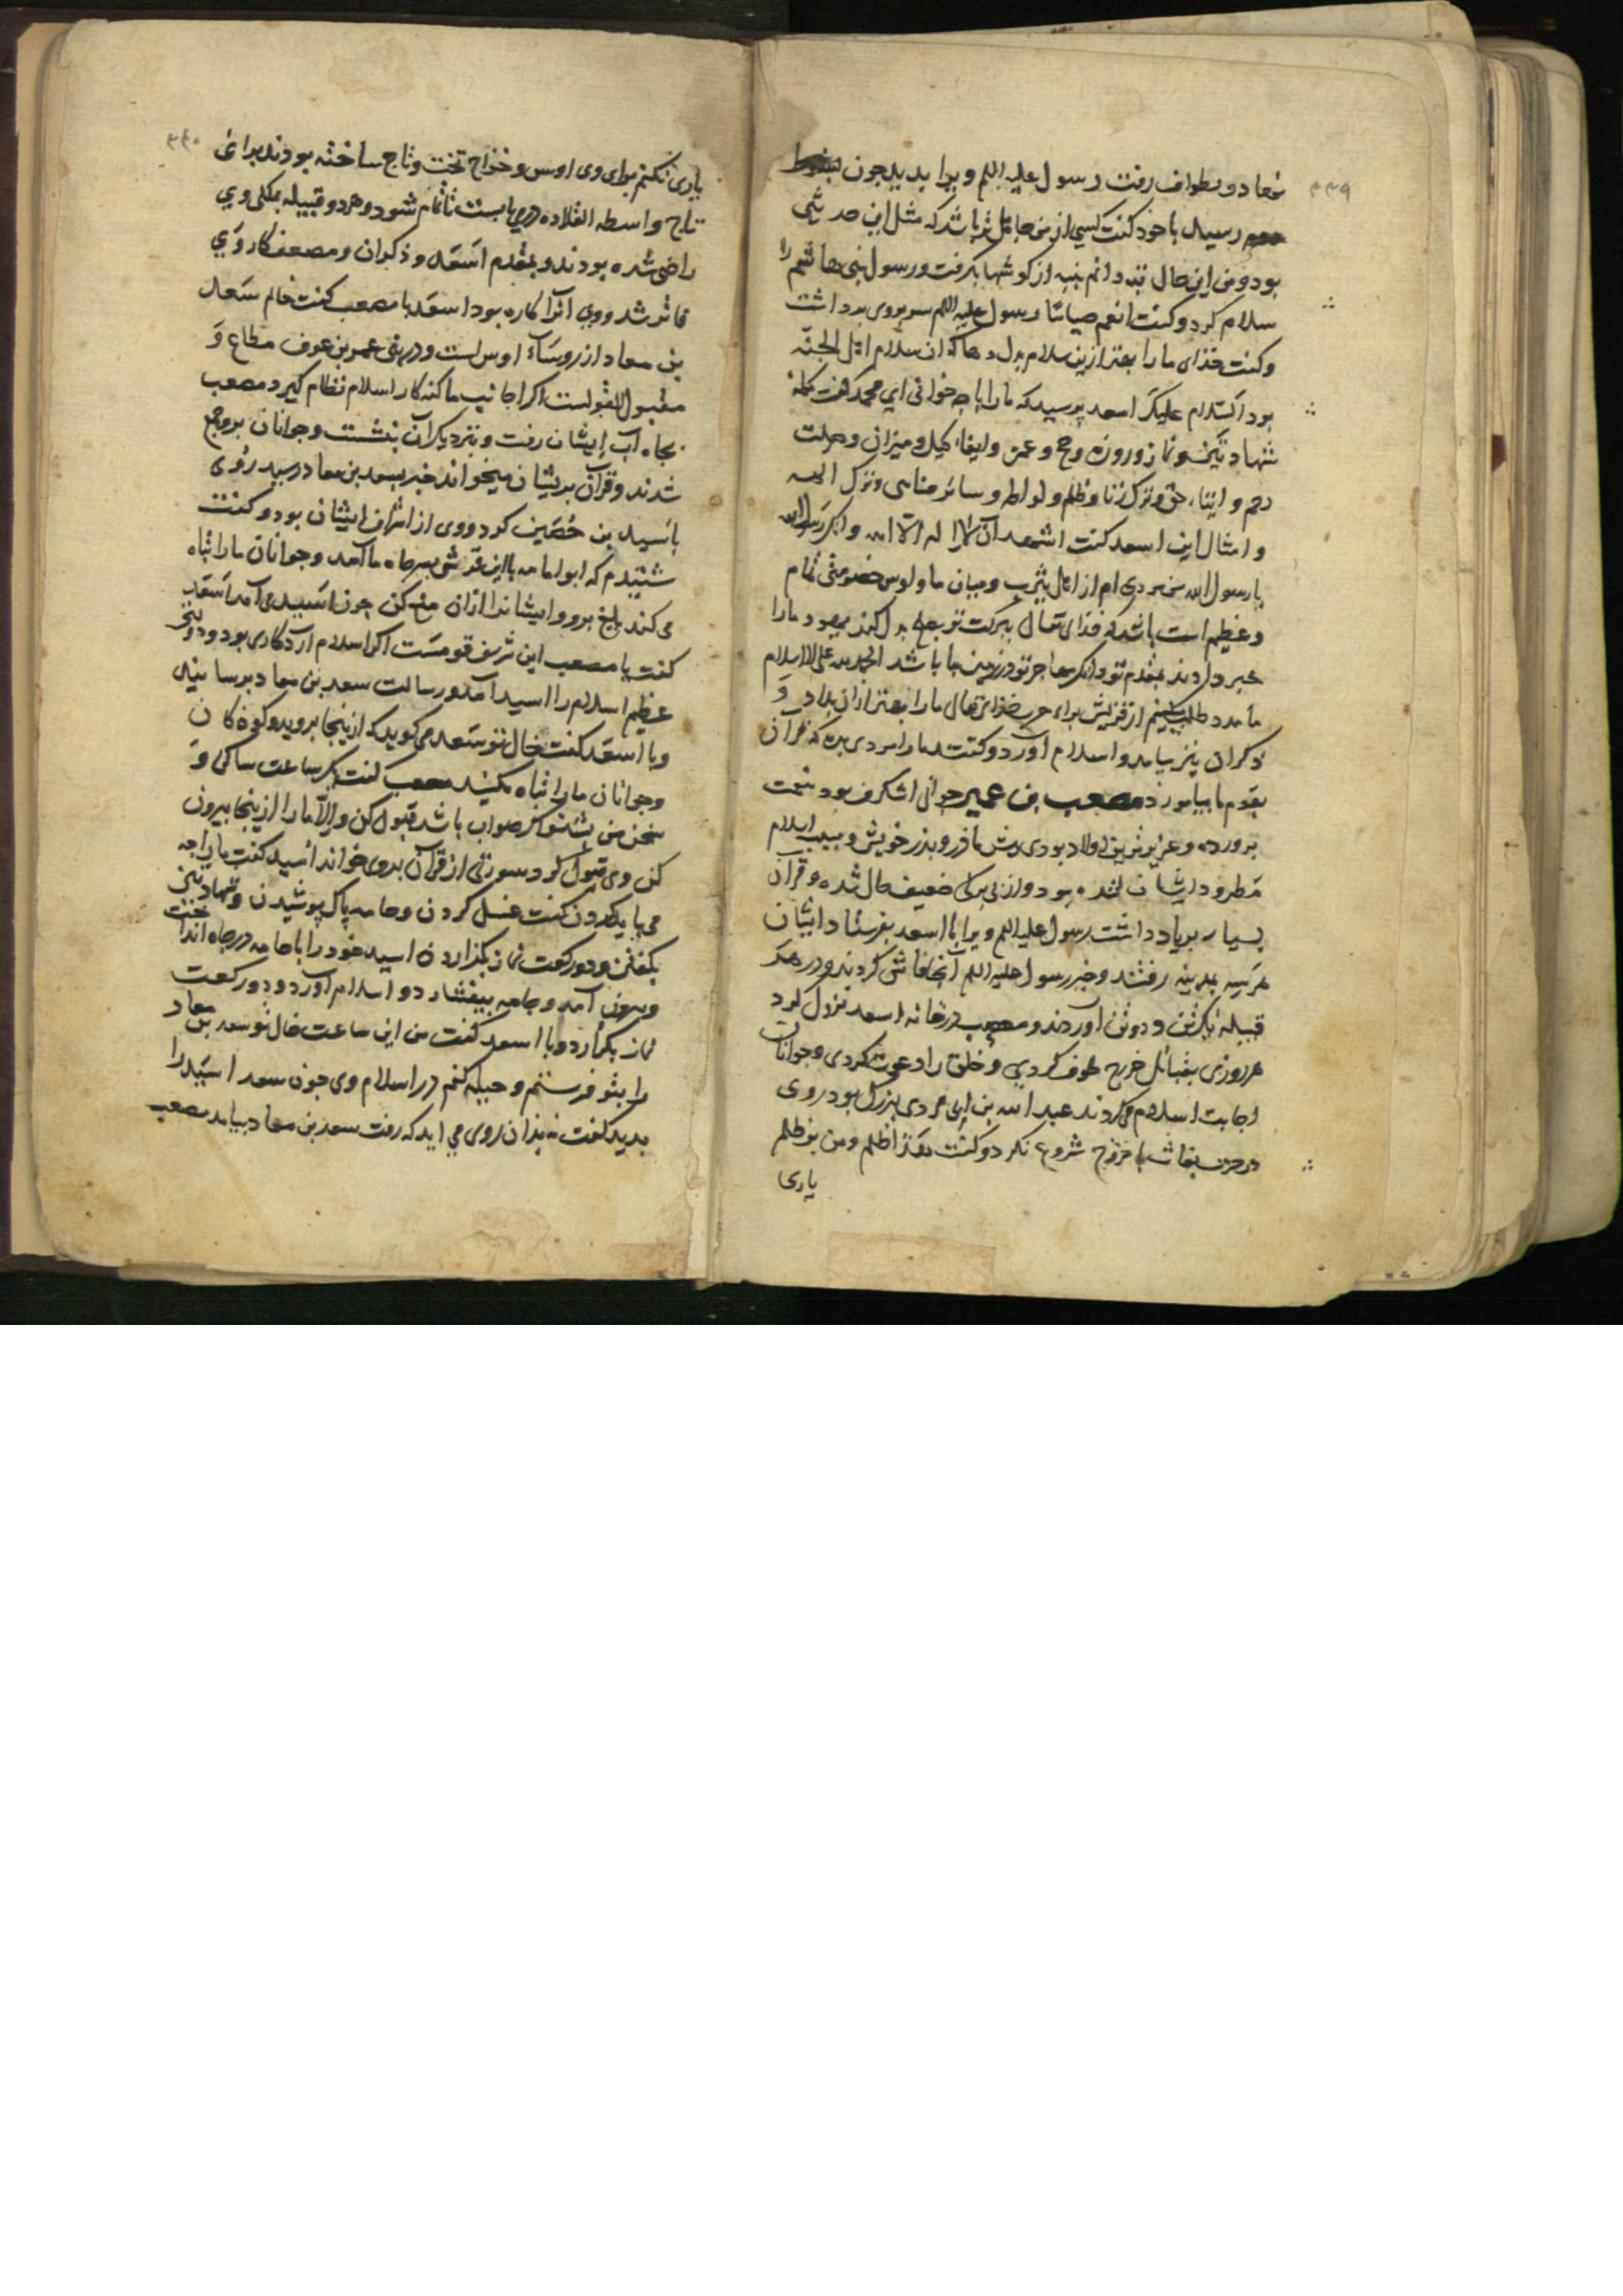 ۳۳۹
معاد در طواف رفت رسول علیه السلم ویرا بدید چون
رسید با خود کفت کسی از من جاهل تر باشد که مثل این حدیثی
بود و من این حال ندانم پنبه از کوشها برکرفت و رسول بنی هاشم را
سلام کرد و کفت انعم صباحا رسول علیه السلم سر بروی برداشت
و کفت خدای ما را بهتر ازین سلام بدل دهاد که ان سلام اهل الجنّه
بود السّلام علیک اسعد پرسید که ما را با چه خوانی ای محمد کفت کلمۀ
شهادتین و نماز و روزه و حج و عمره و ایفاء کیل و میزان و صلت
رحم و ایتاء حق و ترک زنا و ظلم و لواطه و سائر مناهی و ترک
و امثال این اسعد کفت اشهد ان لا اله الا الله و انک رسول الله
یا رسول الله من مردی ام از اهل یثرب و میان ما و اوس خصومتی تمام
و عظیم است باشد که خدای تعالی ببرکت تو بدل کند یهود ما را
خبر داده‌اند بمقدم تو و انک مهاجر تو در زمین ما باشد الحمد لله علی الاسلام
ما مدد طلب کنیم از قریش برای حرب خدای تعالی ما را بهتر از ان بداد و
ذکوان نیز بیامد و اسلام آورد و کفتند ما را مردی بده که قران
بقوم ما بیاموزد مصعب بن عمیر جوانی اشکرف بود بنعمت
پرورده و عزیزترین اولاد بودی پیش مادر و پدر خویش و بسبب اسلام
مطرود ایشان شده بود و از بی برکی ضعیف حال شده و قران
بسیار بریاد داشت رسول علیه السلم ویرا با اسعد بفرستاد ایشان
هر سه بمدینه رفتند و خبر رسول علیه السلم آنجا فاش کردند و در هر
قبیله یک تن و دو تن آوردند و مصعب در خانه اسعد نزول کرد
هر روزی بقبائل خزرج طوف کردی و خلق را دعوت کردی و جوانان
اجابت اسلام می کردند عبد الله بن ابی مردی بزرک بود روی
در حرب بغاث با خزرج شروع نکرد و کفت هذا ظلم و من بر ظلم
یاری
۳۴۰
یاری نکنم برای وی اوس و خزرج تخت و تاج ساخته بودند برای
تاج واسطه القلاده می‌بایست تا تمام شود و هر دو قبیله بملکی وی
راضی شده بودند و بمقدم اسعد و ذکوان و مصعب کار وی
فاتر شد و وی آنرا کاره بود اسعد با مصعب کفت خالم سعد
بن معاد از روساء اوس است و در بنی عمرو بن عوف مطاع و
مقبول القولست اکر اجابت ما کند کار اسلام نظام کیرد مصعب
بجاه آب ایشان رفت و بنزدیک آن بنشست و جوانان برو جمع
شدند و قرآن بریشان میخواند خبر بسعد بن معاد رسید روی
باسید بن حضین کرد و وی از اشراف ایشان بود و کفت
شنیدم که ابو امامه با این قرشی بسر چاه ما آمد و جوانان ما را تباه
می کند بلغ برو و ایشانرا از ان منع کن چون اسید بآمد اسعد
کفت یا مصعب این شریف قومست اکر اسلام آرد کاری بود و نتیجۀ
عظیم اسلام را اسید آمد و رسالت سعد بن معاد برسانید
و با اسعد کفت خال تو سعد می کوید که ازینجا بروید و کودکان
و جوانان ما را تباه مکنید مصعب کفت یک ساعت ساکن و
سخن من بشنو اکر صواب باشد قبول کن و الّا ما را ازینجا بیرون
کن وی قبول کرد سورتی از قرآن بروی خواند اسید کفت ما را چه
می باید کردن کفت غسل کردن و جامه پاک پوشیدن و شهادتین
بکفتن و دو رکعت نماز بکذاردن اسید خود را با جامه در چاه انداخت
و بیرون آمد و جامه بیفشارد و اسلام آورد و دو رکعت
نماز بکزارد و با اسعد کفت من این ساعت خال تو سعد بن معاد
را بتو فرستم و حیله کنم در اسلام وی چون سعد اسید را
بدید کفت نه بدان روی می اید که رفت سعد بن معاد بیامد مصعب